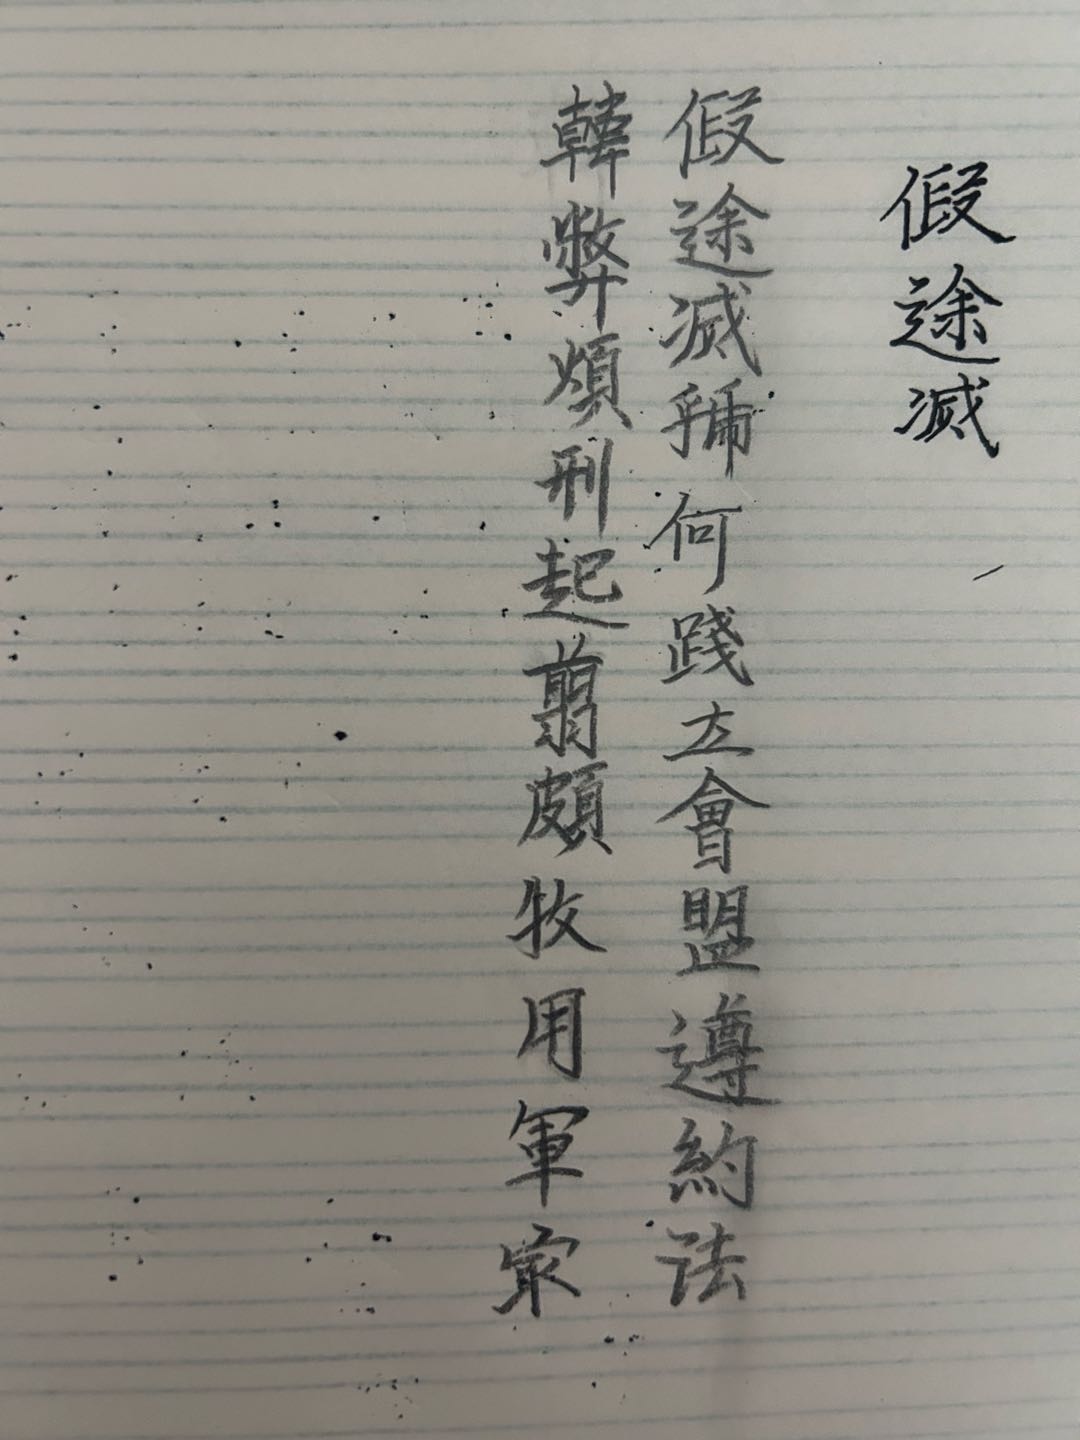 假途滅
假途滅虢何踐土會盟遵約法
韓弊煩刑起翦頗牧用軍最